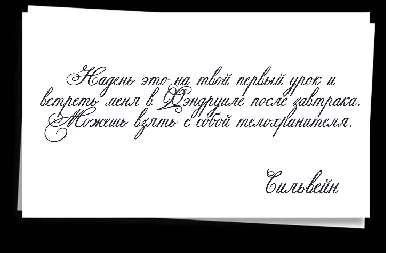 Надень это на твой первый урок и
встреть меня в Дэндруиле после завтрака.
Можешь взять с собой телохранителя.
Сильвейн